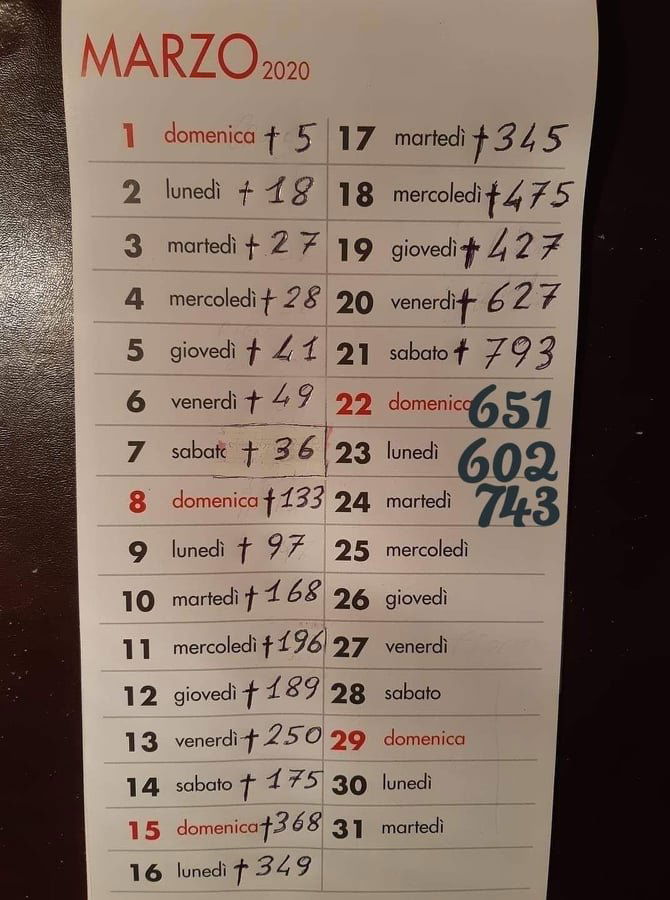 MARZO 2020
1 domenica † 5
2 lunedì † 18
3 martedì † 27
4 mercoledì † 28
5 giovedì † 41
6 venerdì † 49
7 sabato † 36
8 domenica † 133
9 lunedì † 97
10 martedì † 168
11 mercoledì † 196
12 giovedì † 189
13 venerdì † 250
14 sabato † 175
15 domenica † 368
16 lunedì † 349
17 martedì † 345
18 mercoledì † 475
19 giovedì † 427
20 venerdì † 627
21 sabato † 793
22 domenica 651
23 lunedì 602
24 martedì 743
25 mercoledì
26 giovedì
27 venerdì
28 sabato
29 domenica
30 lunedì
31 martedì